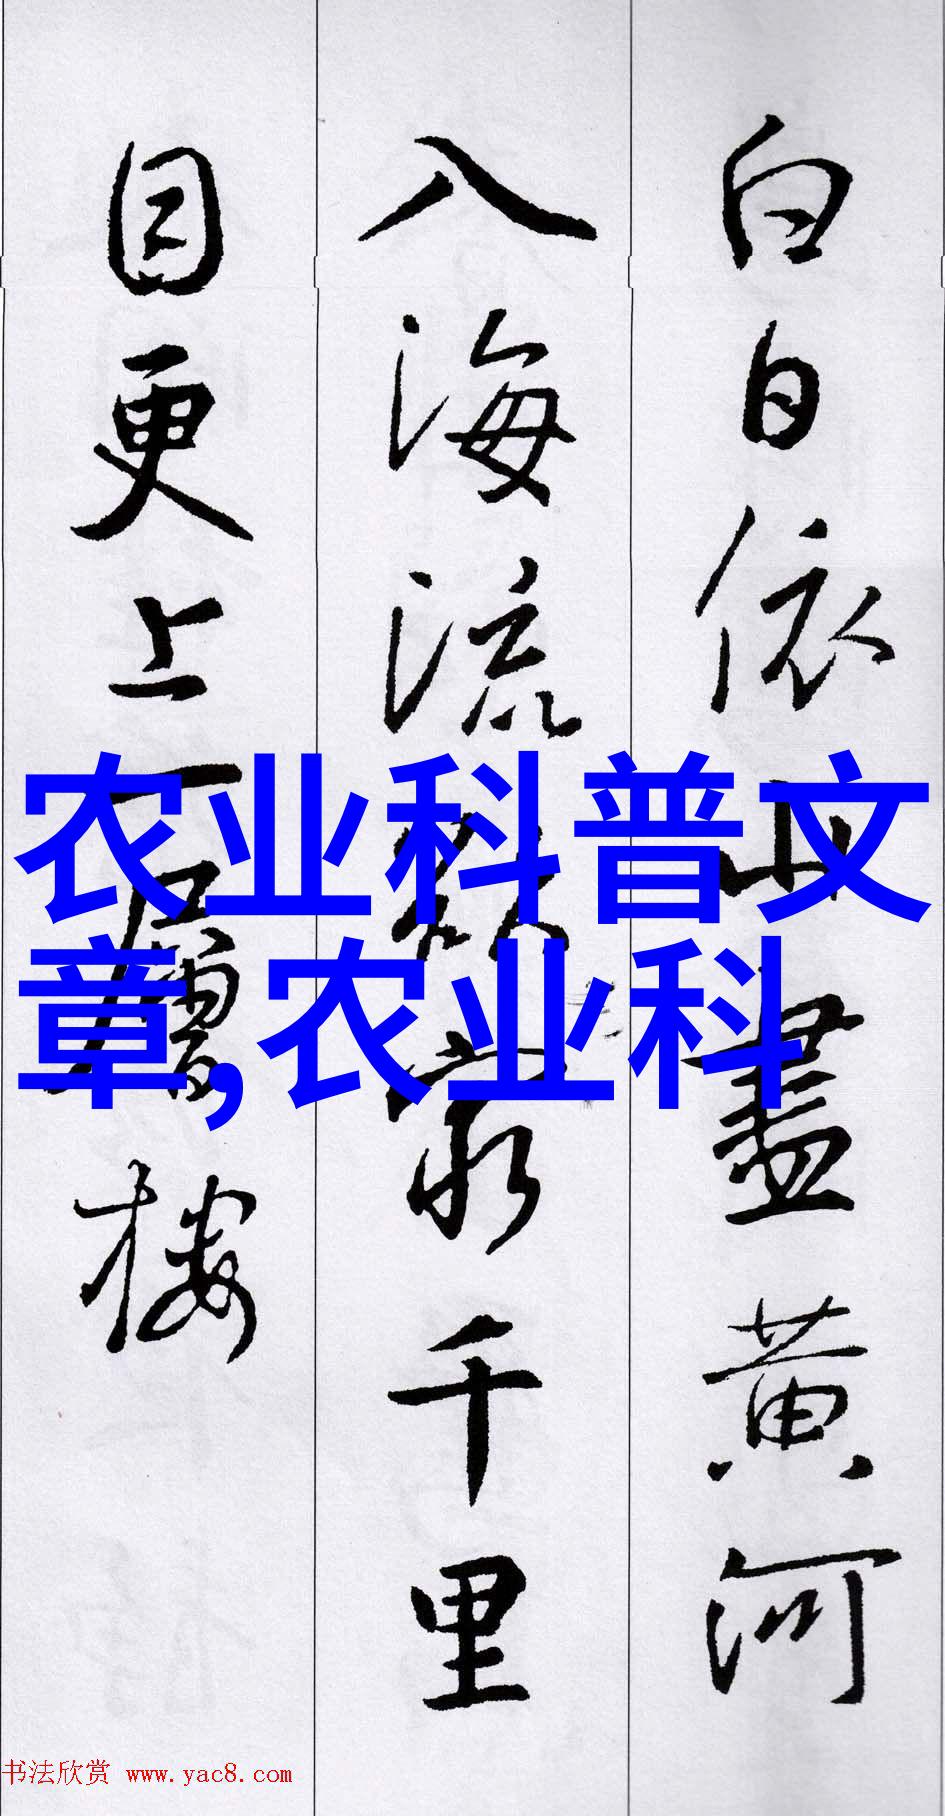 白日依山盡黄河
入海流欲窮千里
目更上一層樓
农业科普文
章,农业科
书法欣赏 www.yac8.com